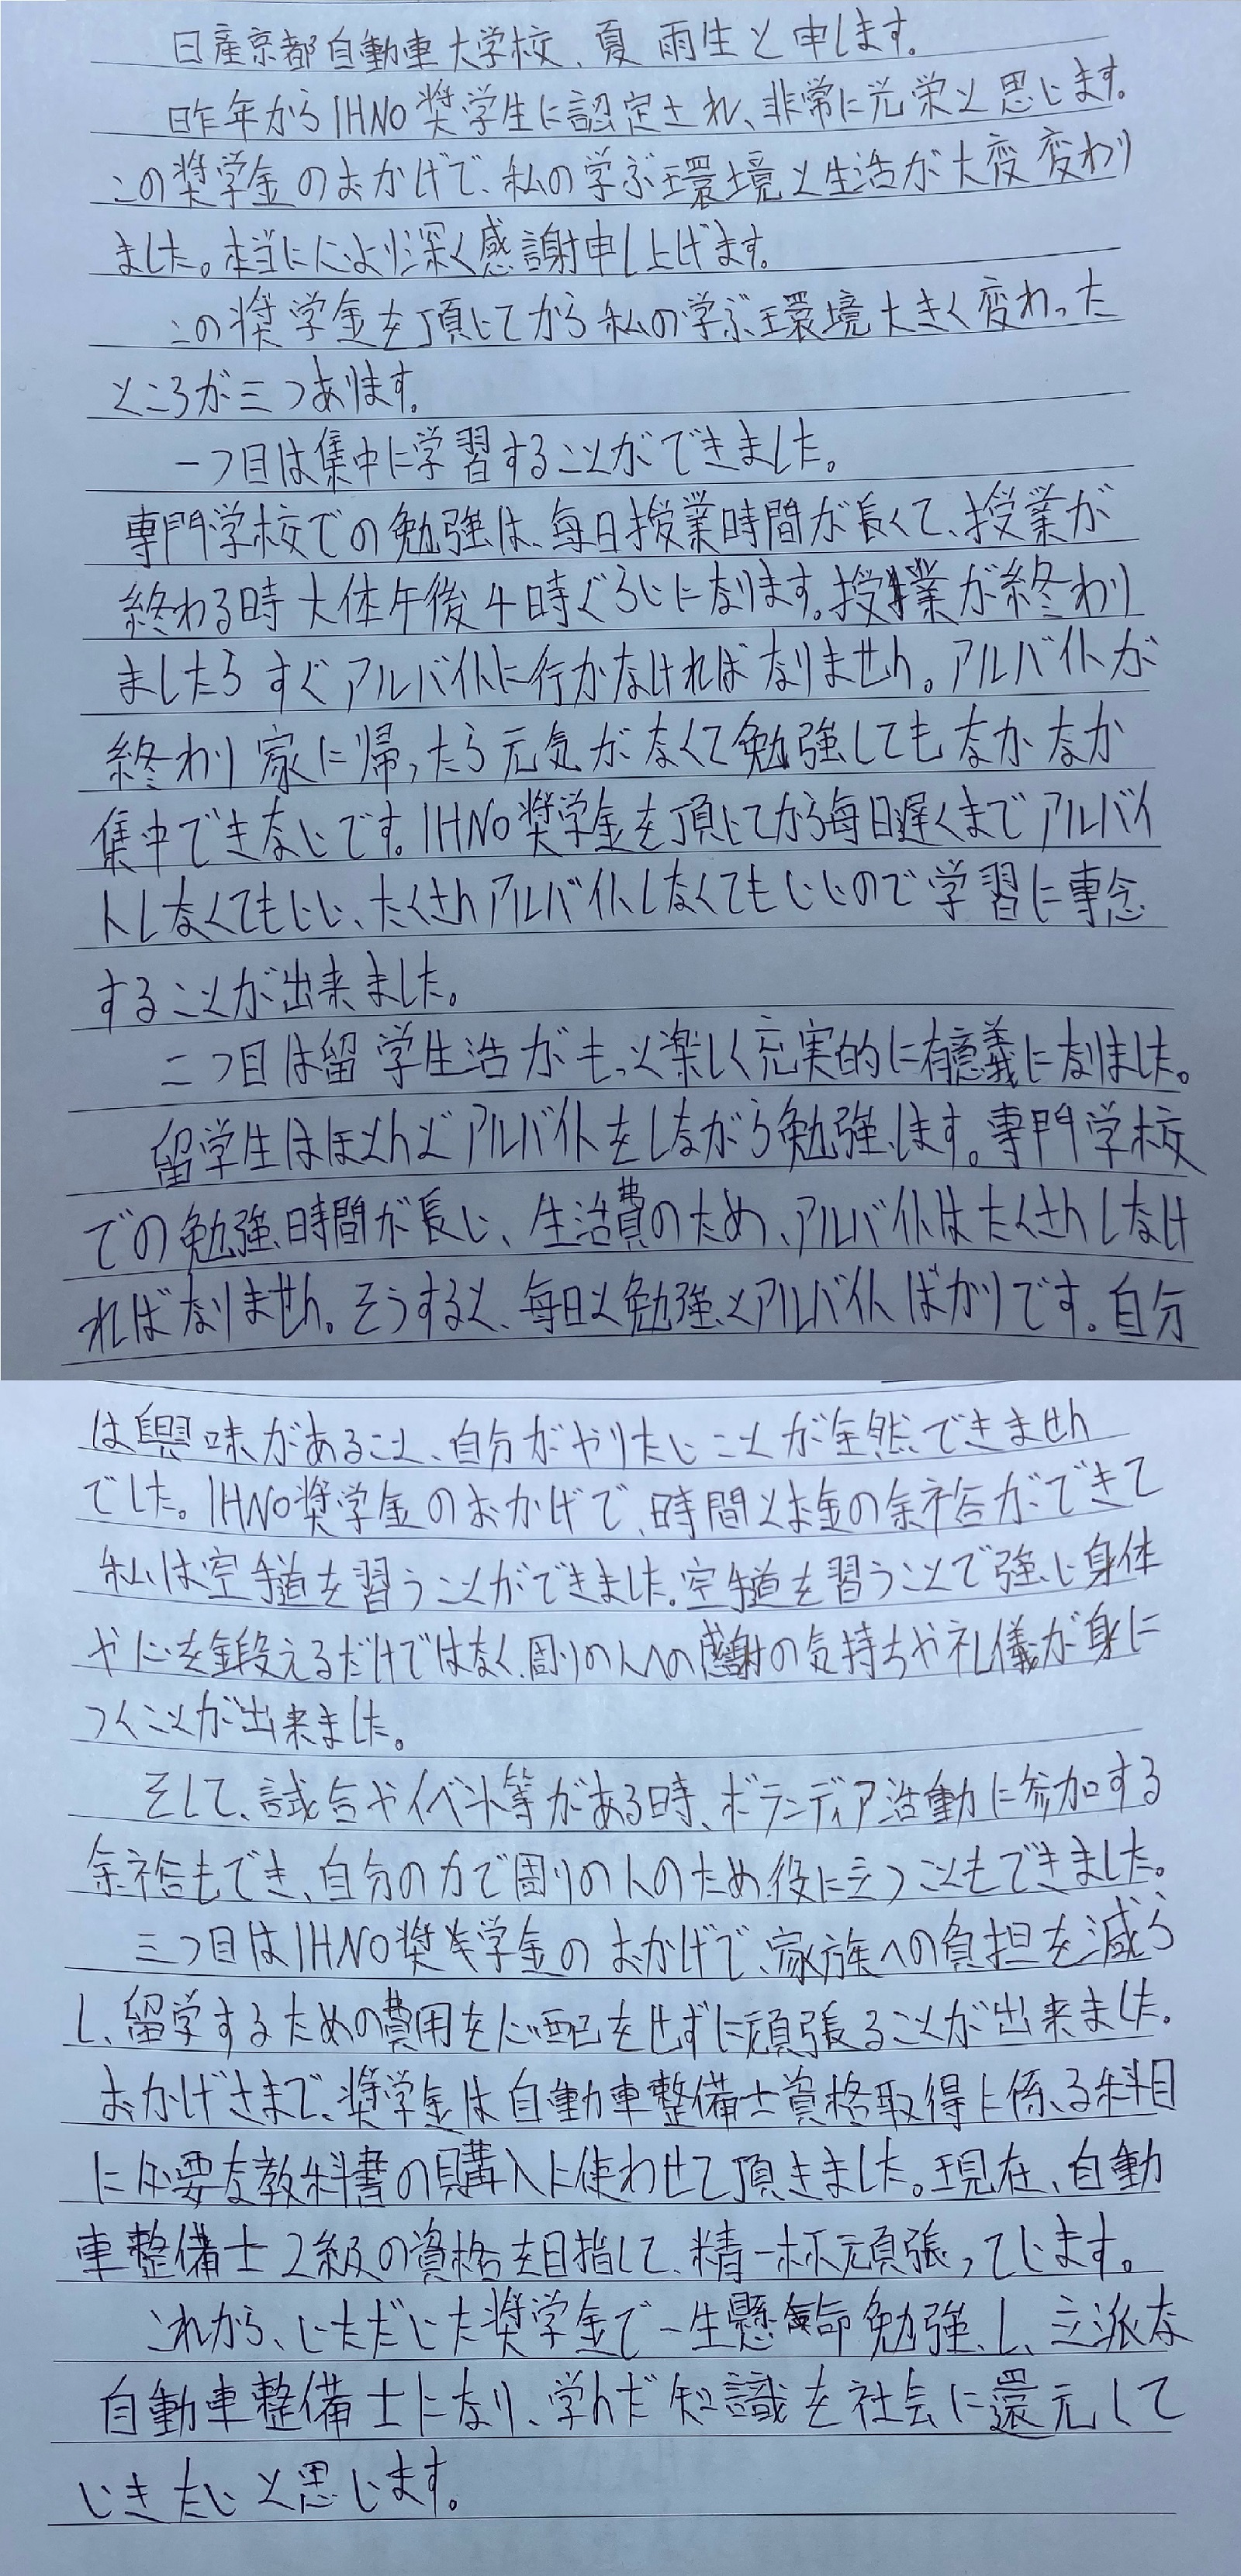 日産京都自動車大学校、夏 雨生と申します。
昨年からIHNO奨学生に認定され、非常に光栄と思います。
この奨学金のおかげで、私の学ぶ環境と生活が大変変わり
ました。本当に心より深く感謝申し上げます。
この奨学金を頂いてから私の学ぶ環境大きく変わった
ところが三つあります。
一つ目は集中に学習することができました。
専門学校での勉強は、毎日授業時間が長くて、授業が
終わる時大体午後4時ぐらいになります。授業が終わり
ましたらすぐアルバイトに行かなければなりません。アルバイトが
終わり家に帰ったら元気がなくて勉強してもなかなか
集中できないです。IHNO奨学金を頂いてから毎日遅くまでアルバイ
トしなくてもいい、たくさんアルバイトしなくてもいいので学習に専念
することが出来ました。
二つ目は留学生活がもっと楽しく充実的に有意義になりました。
留学生はほとんどアルバイトをしながら勉強します。専門学校
での勉強時間が長い、生活費のため、アルバイトはたくさんしなけ
ればなりません。そうすると、毎日と勉強とアルバイトばかりです。自分
は興味があること、自分がやりたいことが全然できません
でした。IHNO奨学金のおかげで、時間とお金の余裕ができて
私は空手道を習うことができました。空手道を習うことで強い身体
や心を鍛えるだけではなく、周りの人への感謝の気持ちや礼儀が身に
つくことが出来ました。
そして、試合やイベント等がある時、ボランディア活動に参加する
余裕もでき、自分の力で周りの人のため役に立つこともできました。
三つ目はIHNO奨学金のおかげで、家族への負担を減ら
し、留学するための費用を心配をせずに頑張ることが出来ました。
おかげさまで、奨学金は自動車整備士資格取得に係る科目
に必要な教科書の購入に使わせて頂きました。現在、自動
車整備士2級の資格を目指して、精一杯頑張っています。
これから、いただいた奨学金で一生懸命勉強し、立派な
自動車整備士になり、学んだ知識を社会に還元して
いきたいと思います。